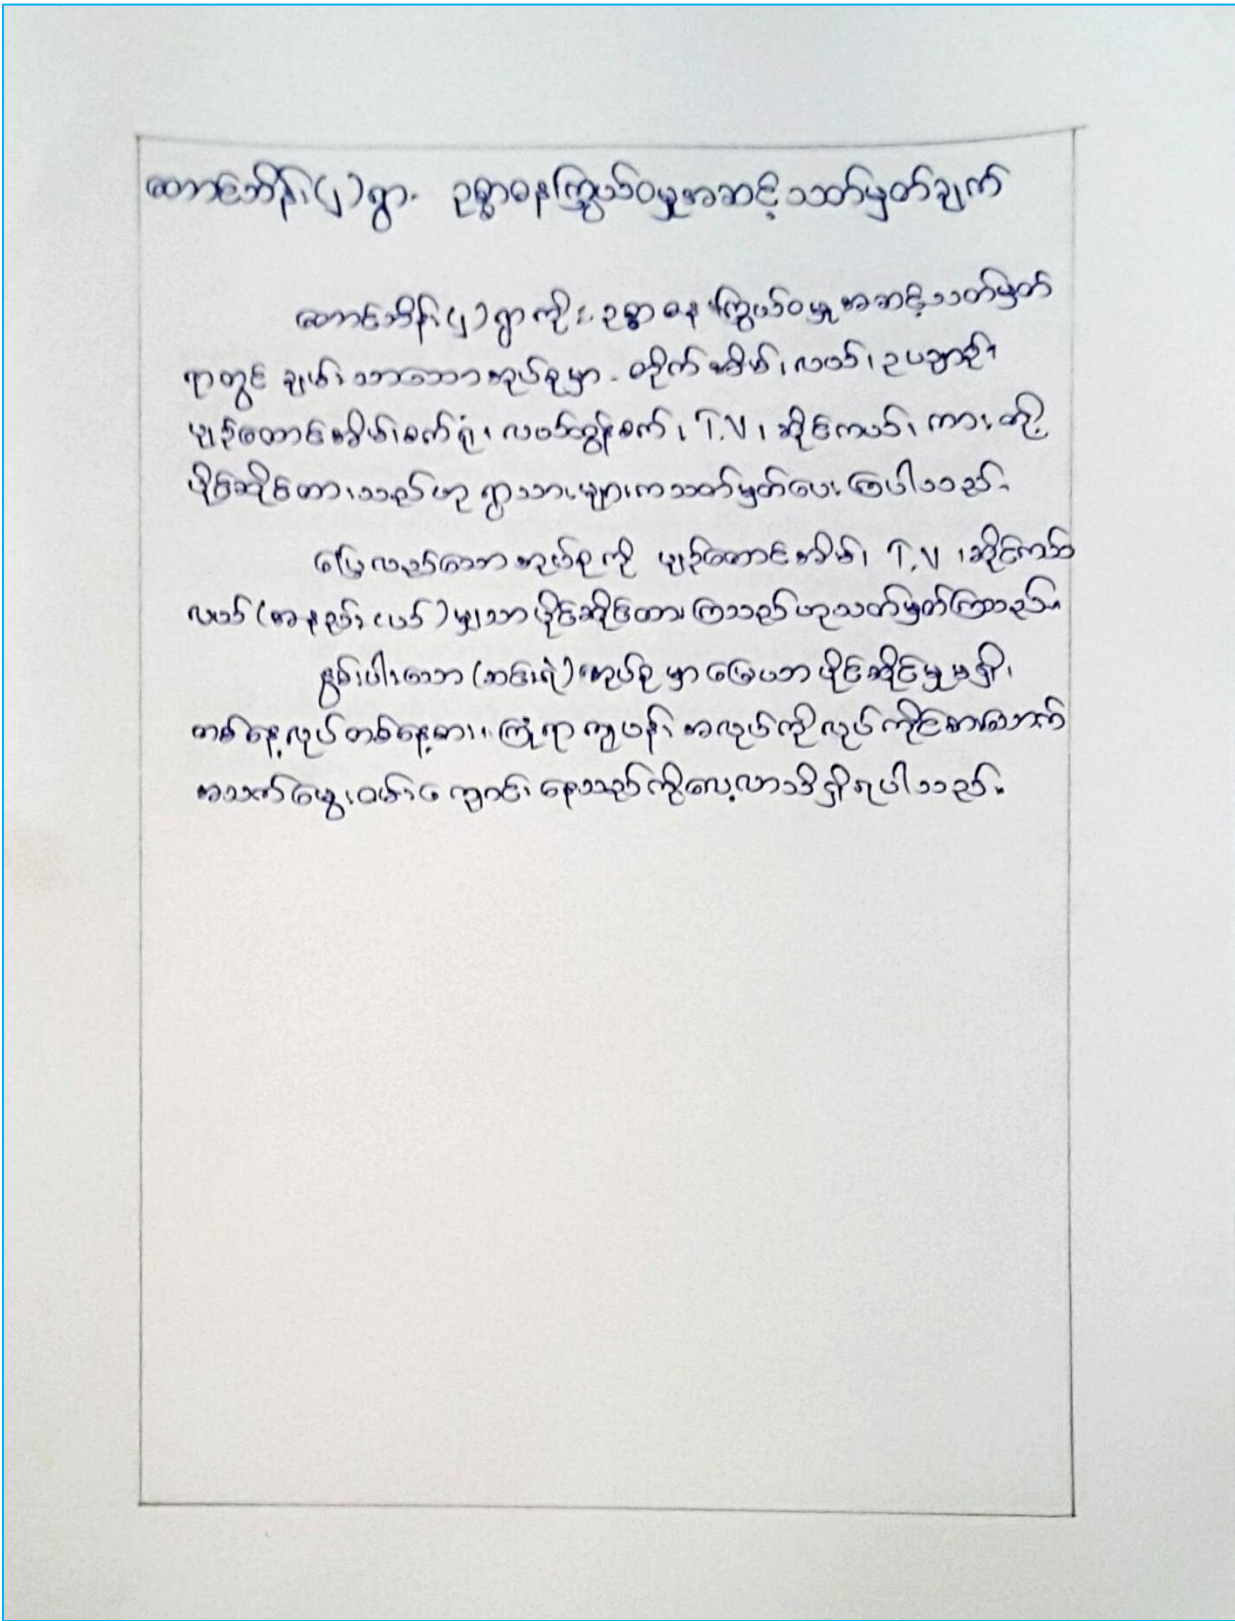 တောင်ဘိန်း(၂)ရွာ. ဥစ္စာဓနကြွယ်ဝမှုအဆင့်သတ်မှတ်ချက်
တောင်ဘိန်း(၂)ရွာကို ဥစ္စာဓနကြွယ်ဝမှုအဆင့်သတ်မှတ်
ရာတွင် ချမ်းသာသောအုပ်စုမှာ - တိုက်အိမ်၊ လယ်၊ ဥယျာဉ်၊
ပျဉ်ထောင်အိမ်၊ စက်ရုံ၊ လယ်ထွန်စက်၊ T.V၊ ဆိုင်ကယ်၊ ကား၊ တို့
ပိုင်ဆိုင်ထားသည်ဟု ရွာသားများကသတ်မှတ်ပေးကြပါသည်။
ပြေလည်သောအုပ်စုကို ပျဉ်ထောင်အိမ်၊ T.V ၊ဆိုင်ကယ်
လယ်(အနည်းငယ်)မျှသာပိုင်ဆိုင်ထားကြသည်ဟုသတ်မှတ်ကြသည်။
နွမ်းပါးသော(ဆင်းရဲ)အုပ်စုမှာမြေယာပိုင်ဆိုင်မှုမရှိ၊
တစ်နေ့လုပ်တစ်နေ့စား၊ ကြုံရာကျပန်း အလုပ်ကိုလုပ်ကိုင်စားသောက်
အသက်မွေးဝမ်းကျောင်းနေသည်ကိုလေ့လာသိရှိရပါသည်။